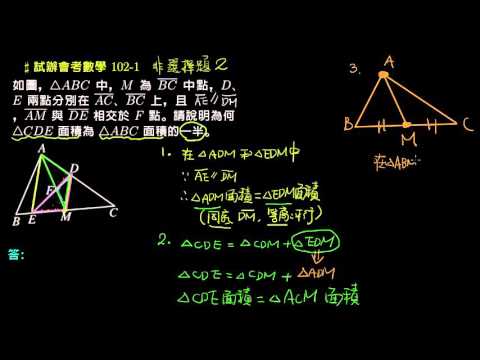 #試辦會考數學 102-1 非選擇題2
如圖，△ABC 中，M 為 BC 中點，D、
E 兩點分別在 AC、BC 上，且 AE // DM
，AM 與 DE 相交於 F 點。請說明為何
△CDE 面積為 △ABC 面積的一半。
A
D
F
B E M C
答：
1. 在 △ADM 和 △EDM中
∵ AE // DM
∴ △ADM面積 = △EDM面積
(同底 DM, 等高∵平行)
2. △CDE = △CDM + △EDM
△CDE = △CDM + △ADM
△CDE面積 = △ACM 面積
3.
A
B M C
在△ABM